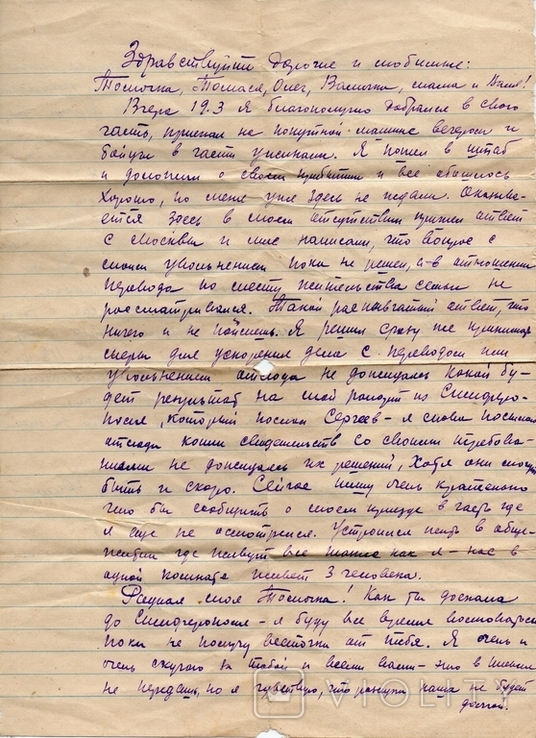 Здравствуйте дорогие и любимые:
Томочка, Томася, Олег, Валюша, мама и Валя!
Вчера 19.3 я благополучно добрался в свою
часть, приехал на попутной машине вечером и
в части узнали. Я пошел в штаб
и доложил о своем прибытии и все обошлось
хорошо, но меня уже здесь не ждали. Оказыва-
ется здесь в моем отсутствии пришел ответ
с Москвы и мне написали, что вопрос с
моим увольнением пока не решен, а в отношении
перевода по месту жительства семьи не
рассматривался. Такой расплывчатый ответ, что
ничего и не поймешь. Я решил сразу же принимать
меры для ускорения дела с переводом или
увольнением отсюда не дожидаясь какой бу-
дет результат на мой рапорт из Симферо-
поля, который послал Сергеев - я снова посылаю
отсюда копии свидетельств со своими требова-
ниями не дожидаясь их решений, хотя они могут
быть и скоро. Сейчас пишу очень кратенько
что бы сообщить о моем приезде в часть где
я еще не осмотрелся. Устроился жить в обще-
житии где живут все такие как я - нас в
одной комнате живет 3 человека.
Родная моя Томочка! Как ты доехала
до Симферополя - я буду все время волноваться
пока не получу весточки от тебя. Я очень и
очень скучаю за тобой и всеми вами - это в
не передашь, но я чувствую, что разлука наша не будет
долгой.
VIOLITY